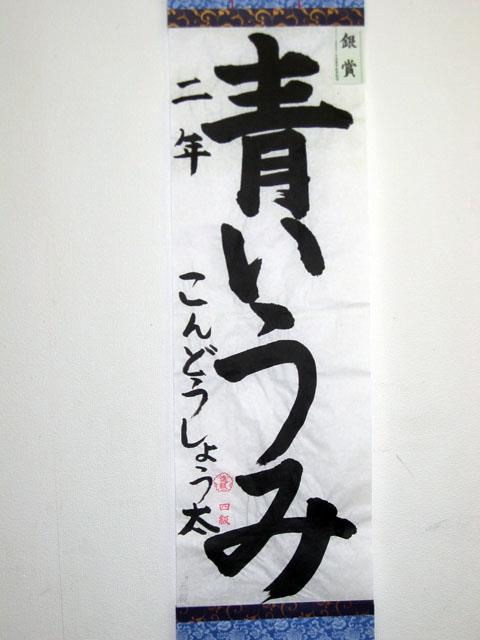 銀賞
青いうみ
二年
こんどうしょう太
四級